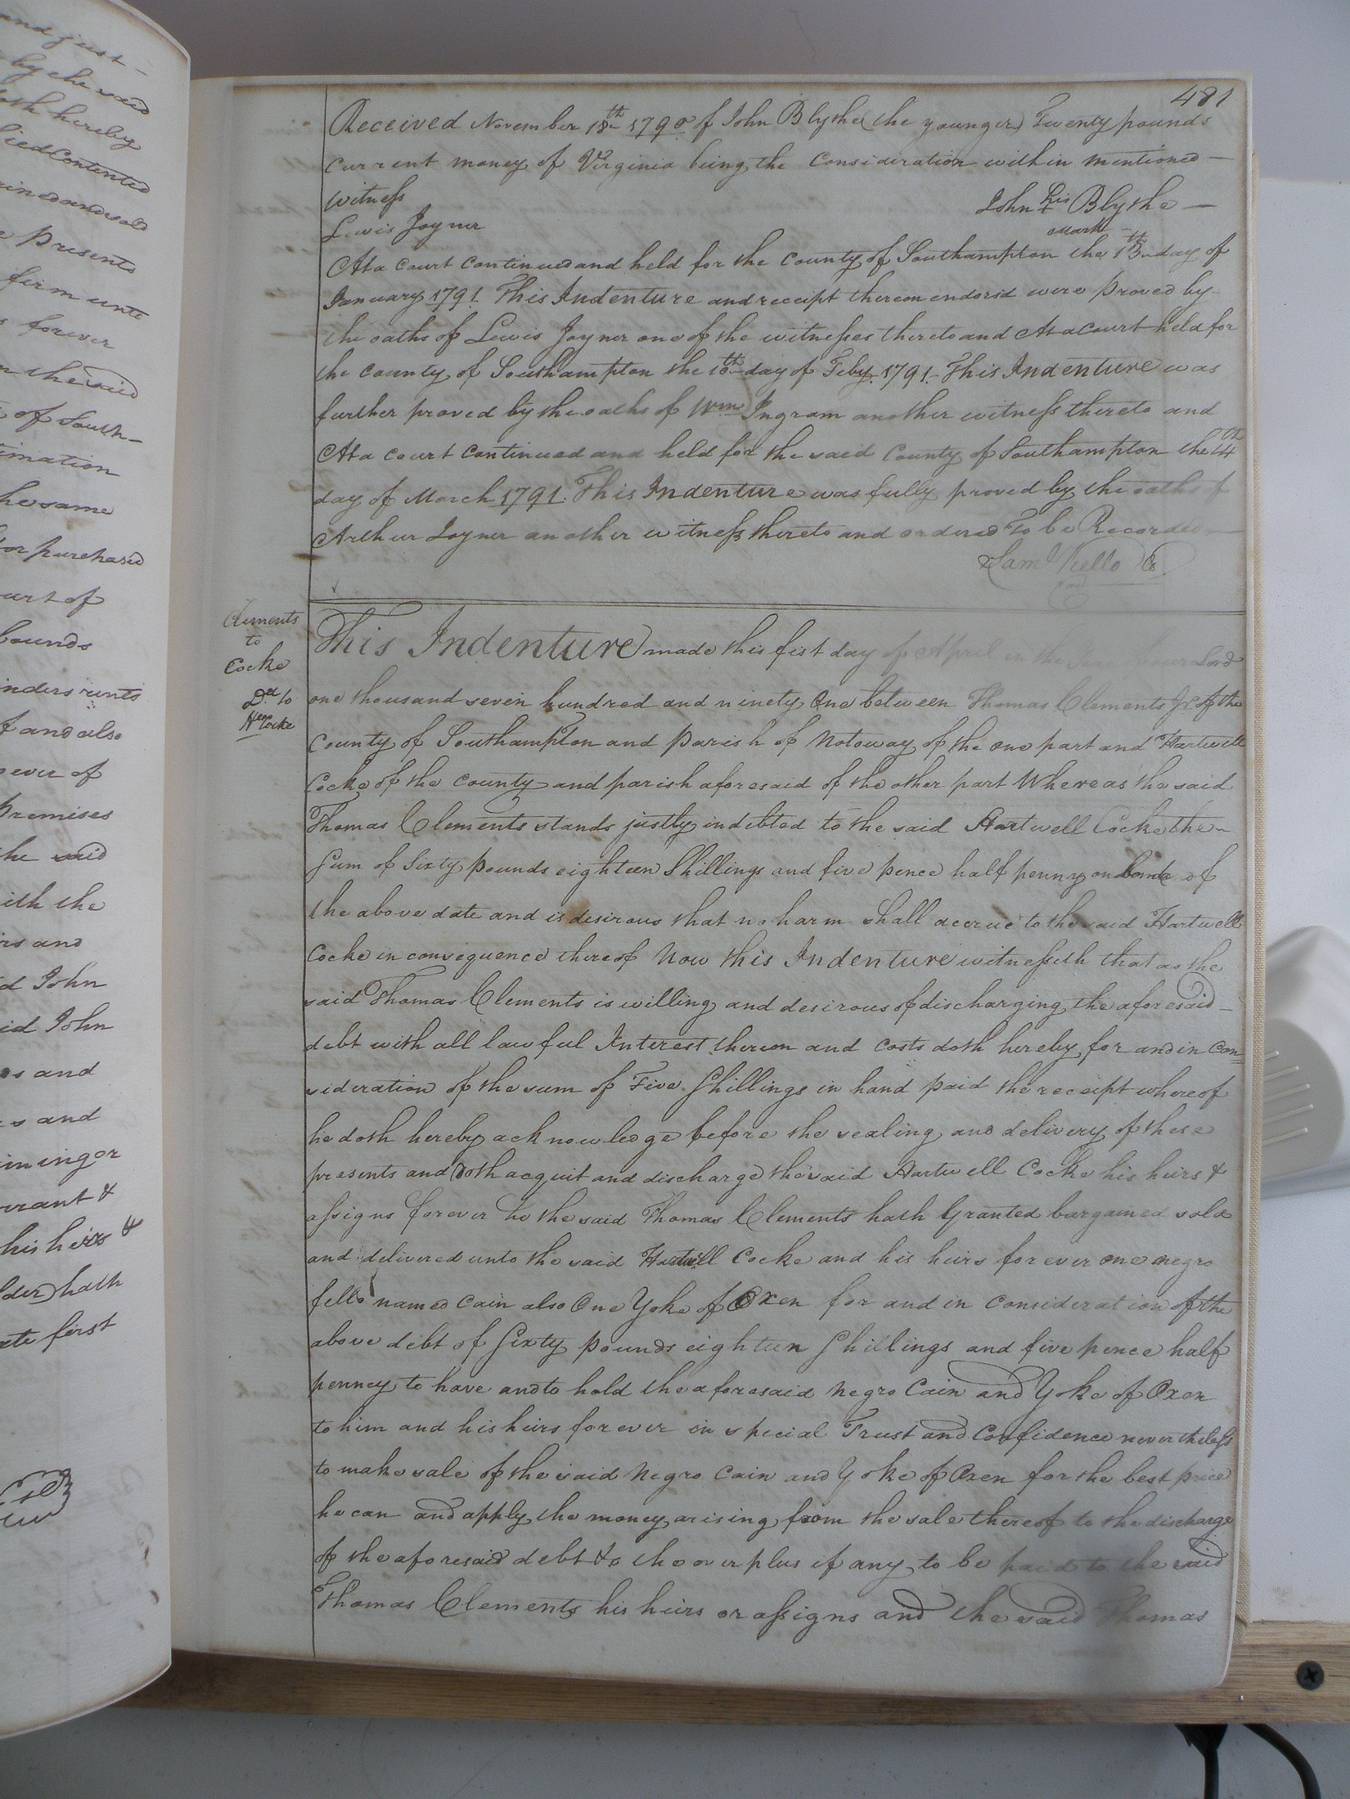 481
Received November 18th 1790 of John Blythe (the younger) Twenty pounds
Current money of Virginia being the Consideration within mentioned —
Witness
John his Blythe —
mark
Lewis Joyner
At a court continued and held for the County of Southampton the 13th day of
January 1791. This Indenture and receipt thereon endorsd were proved by
the oaths of Lewis Joyner one of the witnesses thereto and At a Court held for
the County of Southampton the 10th day of Feby. 1791 - This Indenture was
further proved by the oaths of Wm Ingram another witness thereto and
At a court continued and held for the said County of Southampton the 14th
day of March 1791. This Indenture was fully proved by the oaths of
Arthur Joyner another witness thereto and ordered To be Recorded —
Saml Kello Cc
Clements
to
Cocke
Dd to
Hn Cocke
This Indenture made this fist day of April in the year of our Lord
one thousand seven hundred and ninety One between Thomas Clements Jr of the
County of Southampton and parish of Notoway of the one part and Hartwell
Cocke of the County and parish aforesaid of the other part Whereas the said
Thomas Clements stands justly indebted to the said Hartwell Cocke the
Sum of Sixty pounds eighteen Shillings and five pence half penny on bond of
the above date and is desirous that no harm shall accrue to the said Hartwell
Cocke in consequence thereof Now this Indenture witnesseth that as the
said Thomas Clements is willing and desirous of discharging the aforesaid —
debt with all lawful Interest thereon and costs doth hereby for and in Con=
sideration of the sum of Five Shillings in hand paid the receipt whereof
he doth hereby acknowledge before the sealing and delivery of these
presents and doth acquit and discharge the said Hartwell Cocke his heirs &
assigns forever he the said Thomas Clements hath Granted bargained sold
and delivered unto the said Hartwell Cocke and his heirs forever one negro
fello named Cain also One Yoke of Oxen for and in consideration of the
above debt of Sixty pounds eighteen Shillings and five pence half
penney to have and to hold the aforesaid negro Cain and Yoke of Oxen
to him and his heirs forever in special Trust and Confidence nevertheless
to make sale of the said Negro Cain and Yoke of Oxen for the best price
he can and apply the money arising from the sale thereof to the discharge
of the aforesaid debt &c the overplus if any to be paid to the said
Thomas Clements his heirs or assigns and the said Thomas